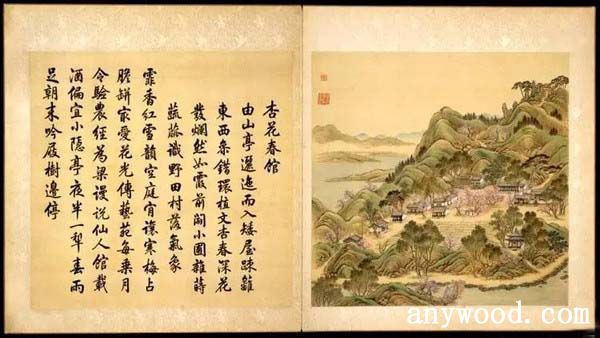 杏花春館
由山亭邐迤而入矮屋疎籬
東西參錯環植文杏春深花
發爛然如霞前闢小圃雜蒔
蔬蓏識野田村落氣象
霏香紅雪韻空庭肯讓寒梅占
膽缾最愛花光傳藝苑每乗月
令驗農經為梁謾說仙人館載
酒偏宜小隱亭夜半一犁春雨
足朝来吟屐樹邊停
anywood.com